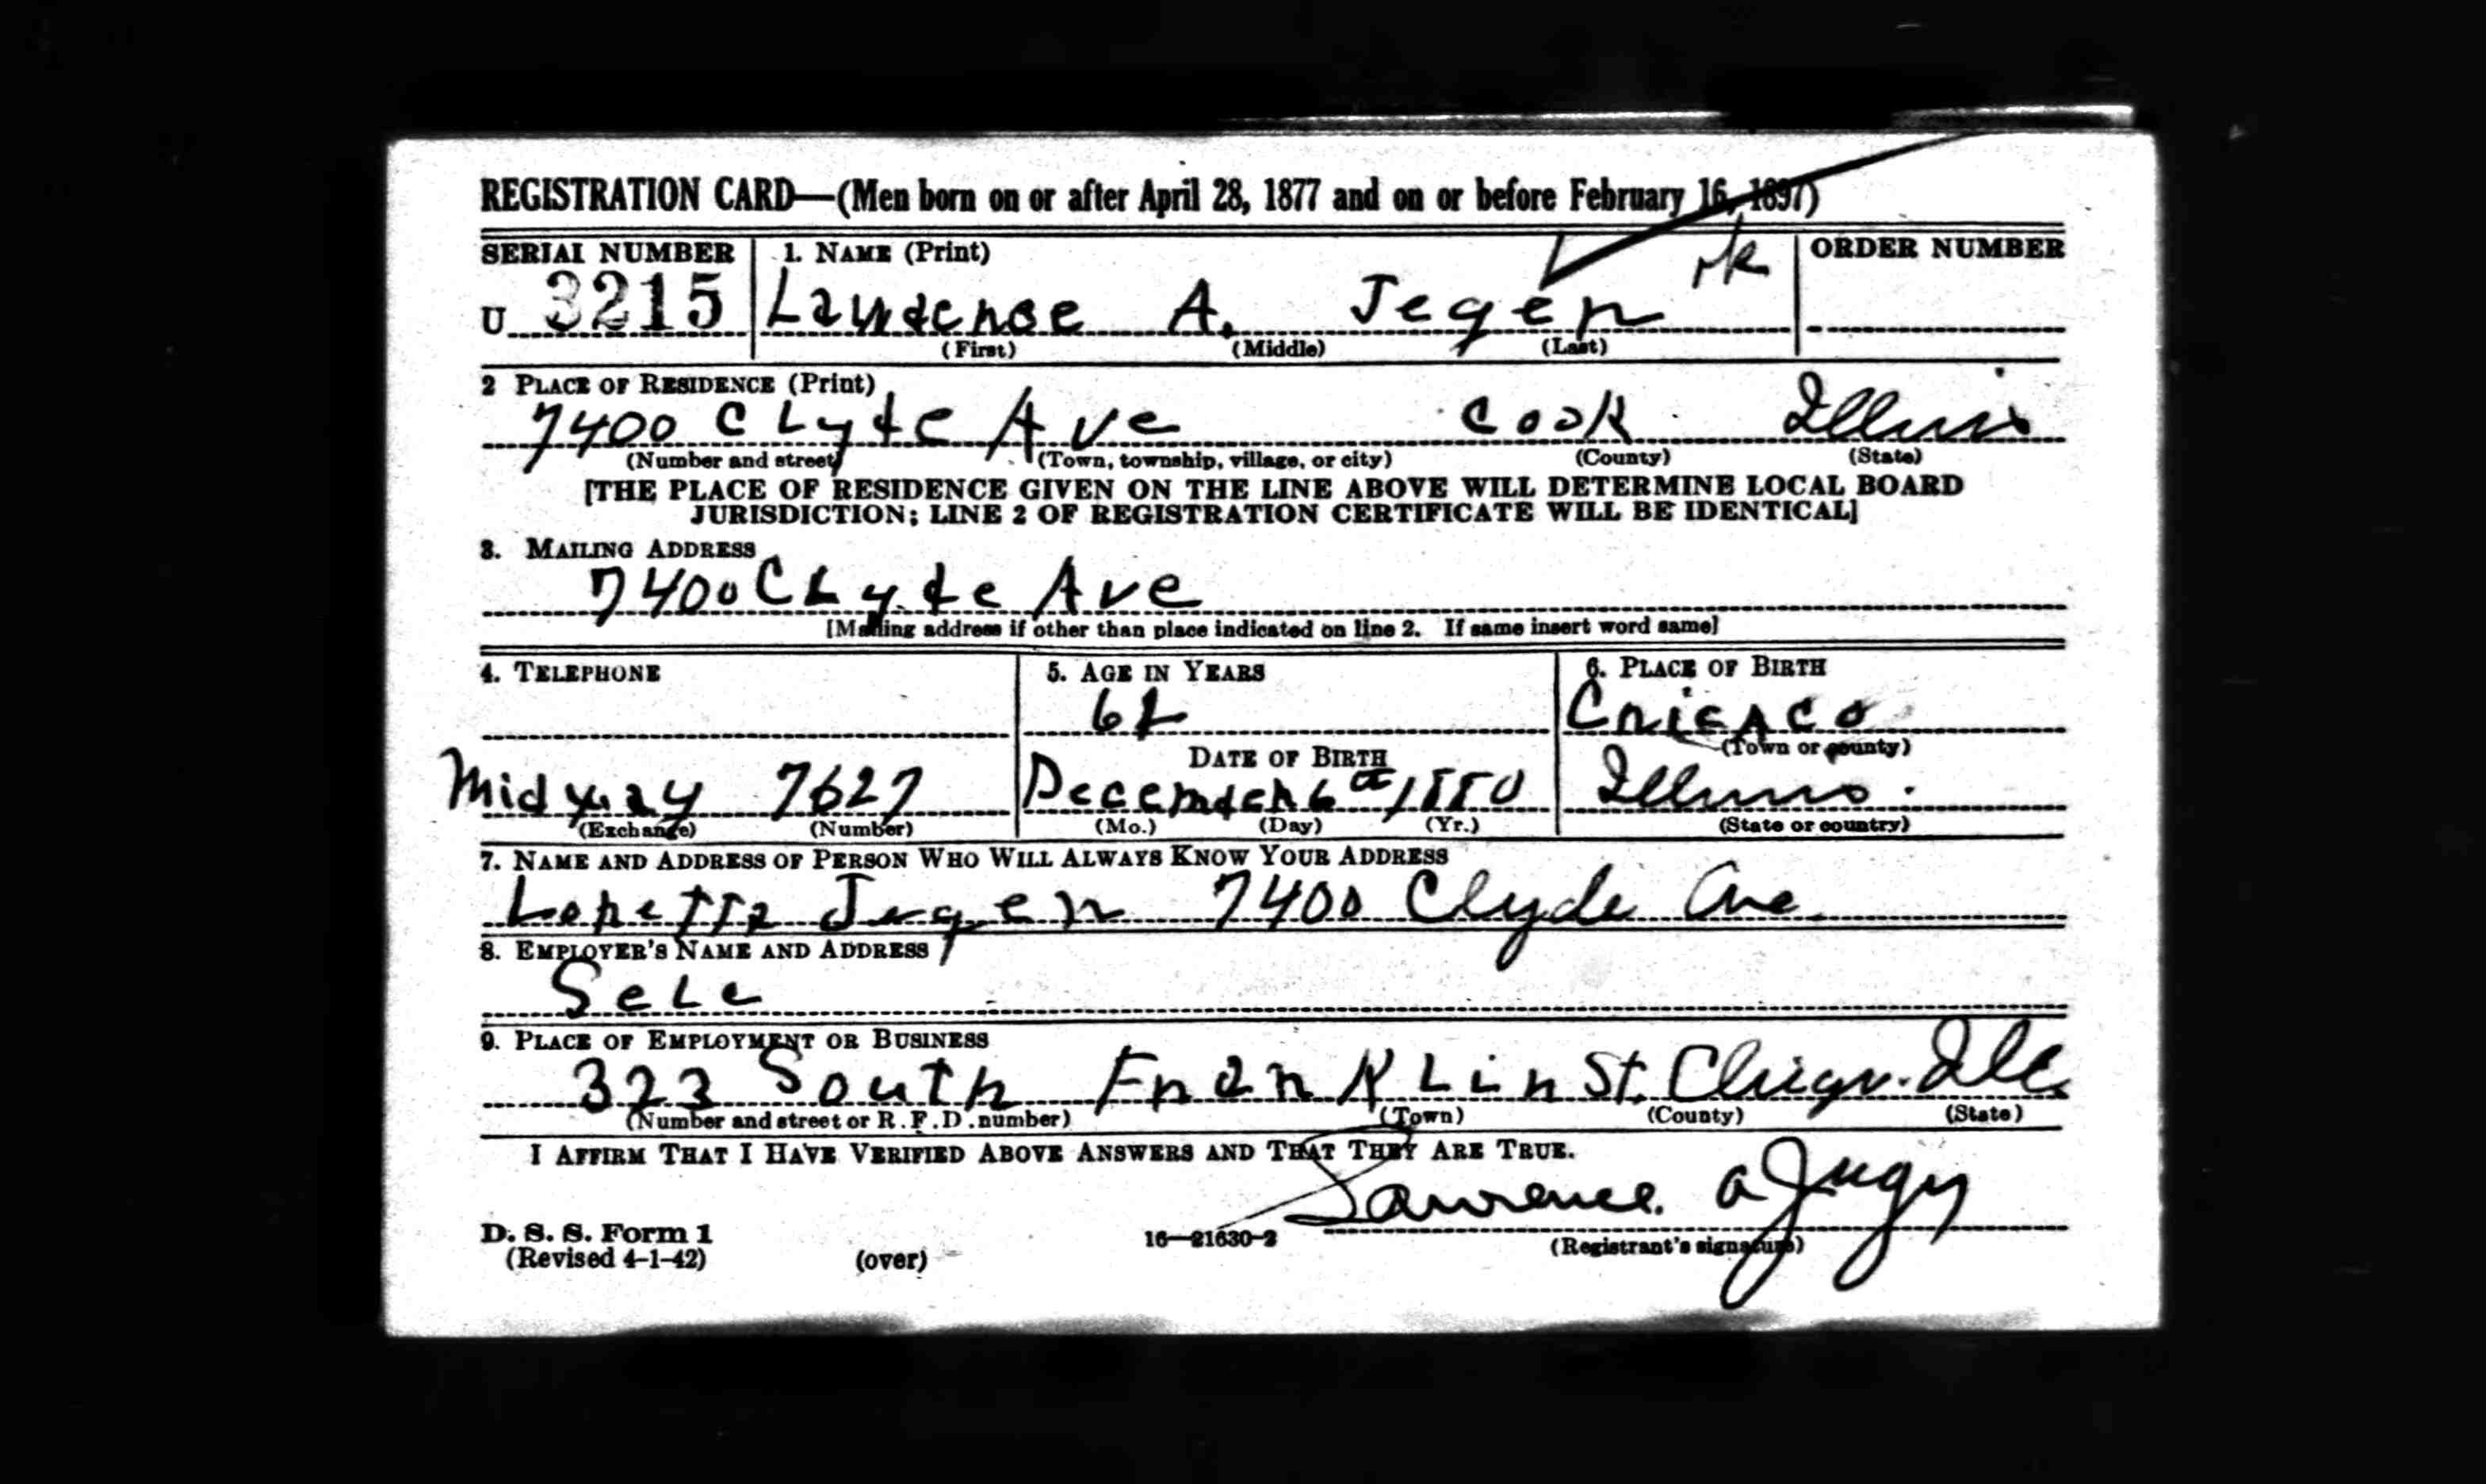 REGISTRATION CARD—(Men born on or after April 28, 1877 and on or before February 16, 1897)
SERIAL NUMBER 1. NAME (Print) ORDER NUMBER
U 3215 Lawrence A. Jegen
(First) (Middle) (Last)
2 PLACE OF RESIDENCE (Print)
7400 CLyde Ave Cook Illinois
(Number and street) (Town, township, village, or city) (County) (State)
[THE PLACE OF RESIDENCE GIVEN ON THE LINE ABOVE WILL DETERMINE LOCAL BOARD
JURISDICTION; LINE 2 OF REGISTRATION CERTIFICATE WILL BE IDENTICAL]
3. MAILING ADDRESS
7400 CLyde Ave
[Mailing address if other than place indicated on line 2. If same insert word same]
4. TELEPHONE 5. AGE IN YEARS 6. PLACE OF BIRTH
Chicago
(Town or county)
DATE OF BIRTH
Midway 7627 December 6th 1880 Illinois.
(Exchange) (Number) (Mo.) (Day) (Yr.) (State or country)
7. NAME AND ADDRESS OF PERSON WHO WILL ALWAYS KNOW YOUR ADDRESS
Loretta Jegen 7400 Clyde Ave
8. EMPLOYER'S NAME AND ADDRESS
SeLf
9. PLACE OF EMPLOYMENT OR BUSINESS
323 South FranKLin St. Chicago. Ill.
(Number and street or R. F. D. number) (Town) (County) (State)
I AFFIRM THAT I HAVE VERIFIED ABOVE ANSWERS AND THAT THEY ARE TRUE.
Lawrence a Jegen
D. S. S. Form 1 16—21630-2 (Registrant's signature)
(Revised 4-1-42) (over)